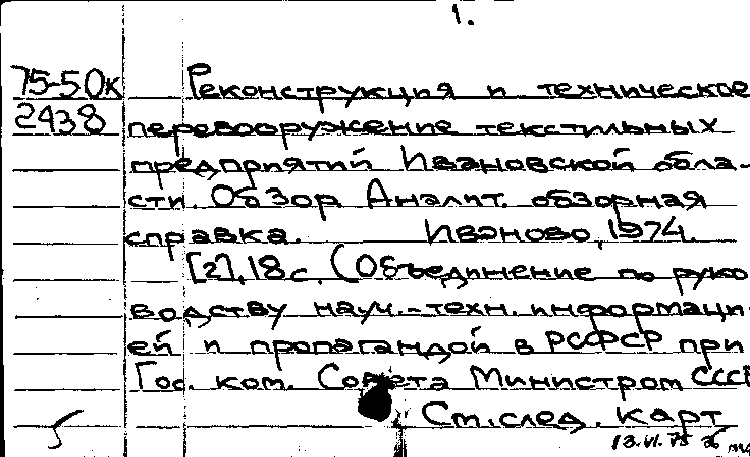 1.
75-50к Реконструкция и техническое
2438 перевооружение текстильных
предприятий Ивановской обла-
сти. Обзор. Аналит. обзорная
справка. Иваново, 1974.
[2], 18 с. (Объединение по руко
водству науч.-техн. информаци-
ей и пропагандой в РСФСР при
Гос. ком. Совета Министром СССР
См. след. карт
13.VI.75